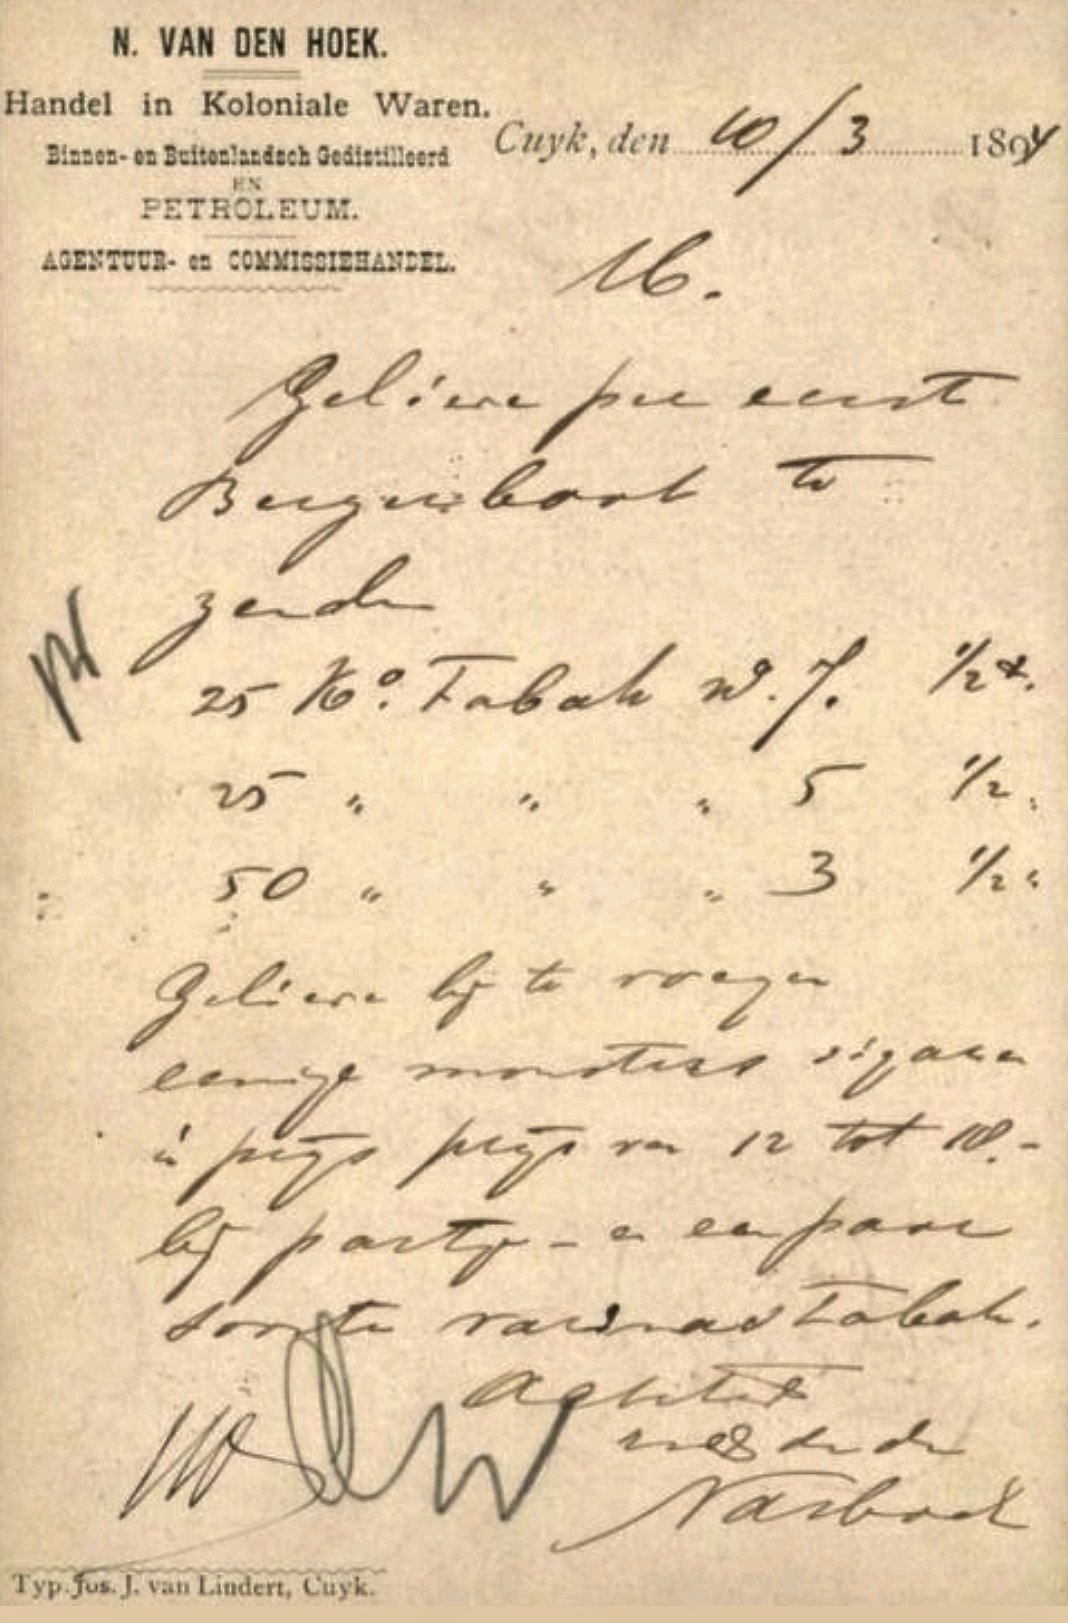 N. VAN DEN HOEK.
Handel in Koloniale Waren.
Binnen- en Buitenlandsch Gedistilleerd
EN
PETROLEUM.
AGENTUUR- en COMMISSIEHANDEL.
Cuyk, den 10/3 1894
M.
Gelieve per eerst
Bergenboot te
zenden
25 Ko. Tabak No. 7. 1/2
25 " " " 5 1/2 "
50 " " " 3 1/2 "
Gelieve bij te voegen
eenige monsters sigaren
in prijs van 12 tot 18.-
bij partij - en een paar
soorten varinas Tabak.
Achtend
Typ. Jos. J. van Lindert, Cuyk.